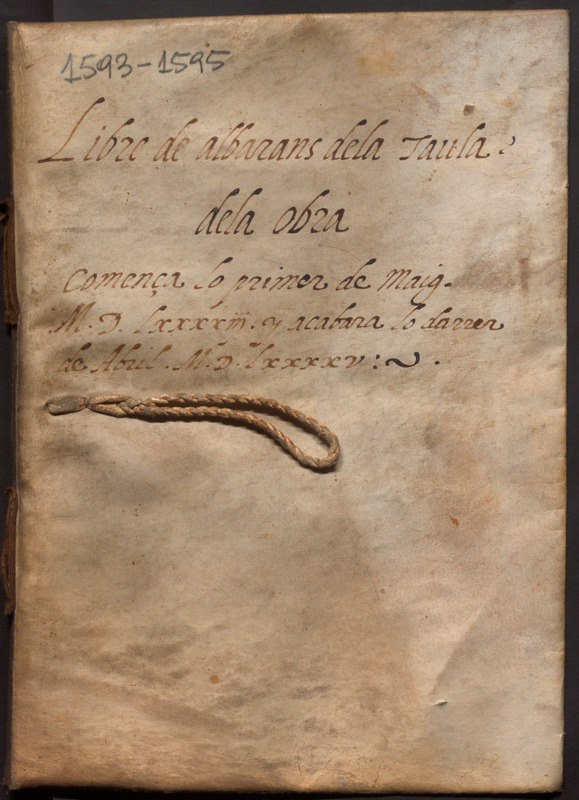 1593-1595
Libre de albarans dela Taula
dela obra
Comença lo primer de Maig.
M. D. lxxxxiij. y acabara lo darrer
de Abril. M. D. lxxxxv :~ .